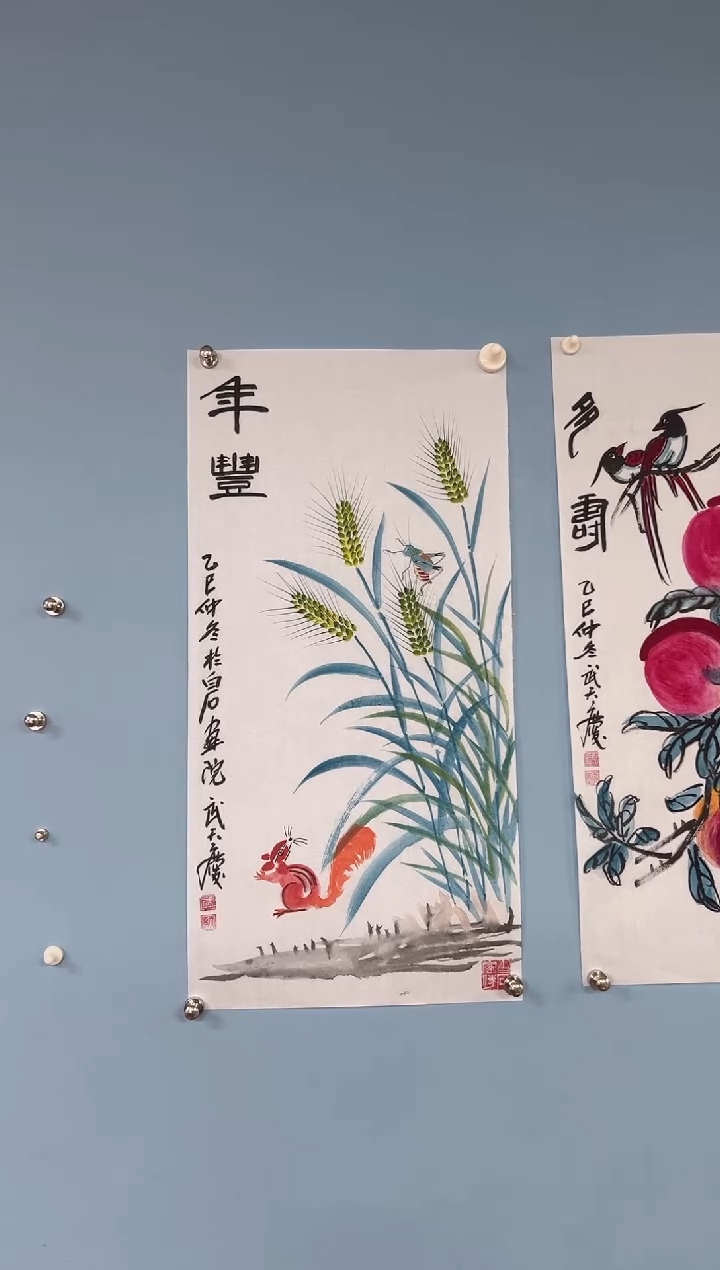 年豐
乙巳仲冬於白石畫院 武大慶
多壽
乙巳仲冬 武大慶